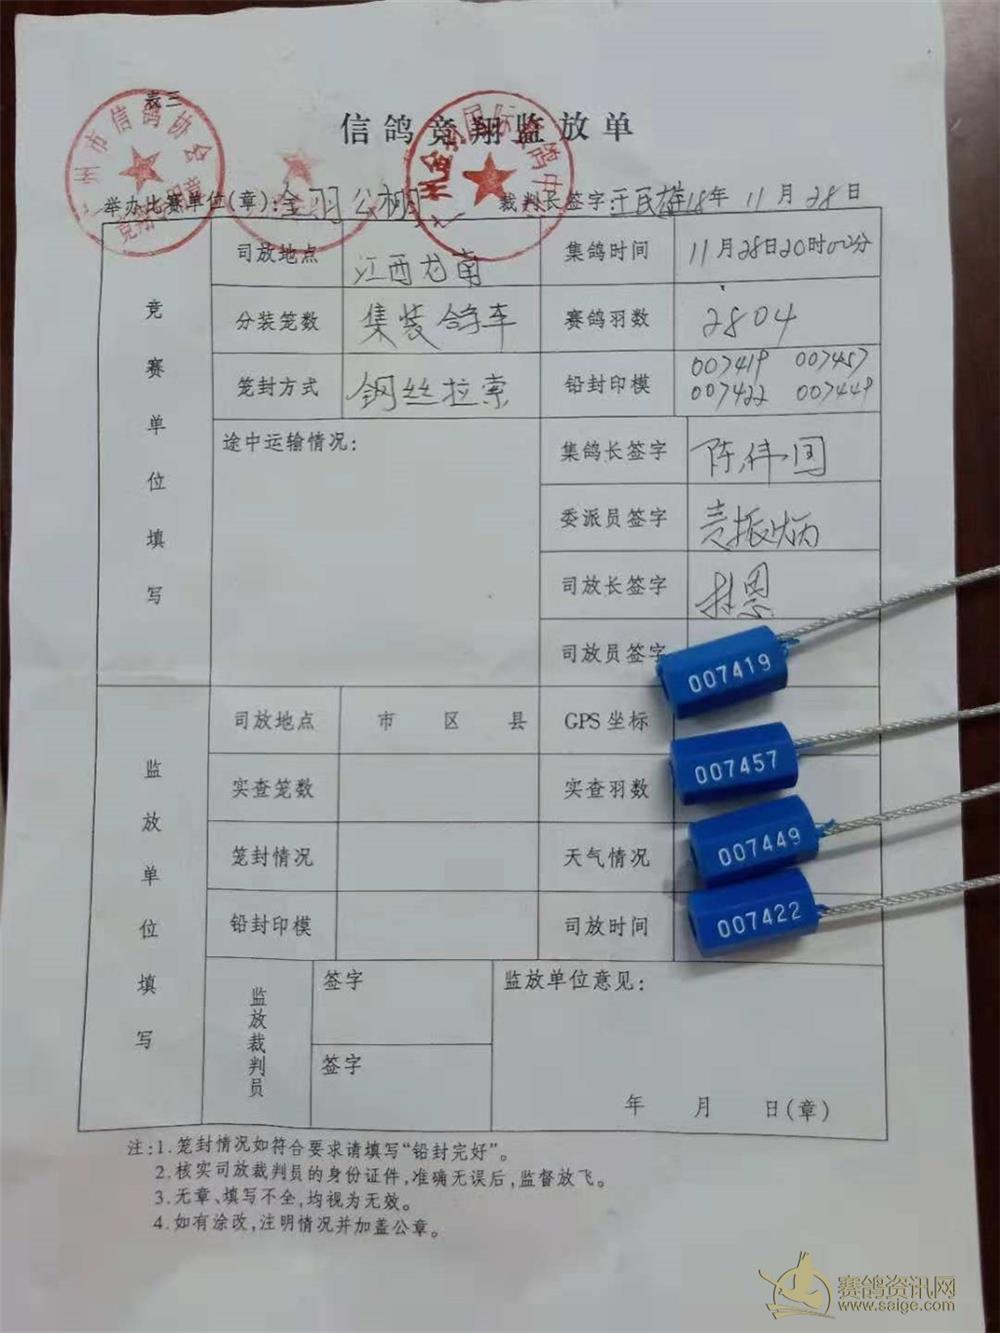 表三
信鸽竞翔监放单
州市信鸽协会
举办比赛单位(章): 金羽公棚 裁判长签字: 18年 11月28日
竞赛单位填写
司放地点 江西龙南 集鸽时间 11月28日20时00分
分装笼数 集装鸽车 赛鸽羽数 2804
笼封方式 钢丝拉索 铅封印模 007419 007457
007422 007449
途中运输情况: 集鸽长签字 陈伟国
委派员签字 麦振炳
司放长签字
司放员签字
007419
监放单位填写
司放地点 市 区 县 GPS坐标
007457
实查笼数 实查羽数
007449
笼封情况 天气情况
007422
铅封印模 司放时间
监放裁判员 签字 监放单位意见:
签字
年 月 日(章)
注:1.笼封情况如符合要求请填写“铅封完好”。
2.核实司放裁判员的身份证件,准确无误后,监督放飞。
3.无章、填写不全,均视为无效。
4.如有涂改,注明情况并加盖公章。
赛鸽资讯网
www.saige.com